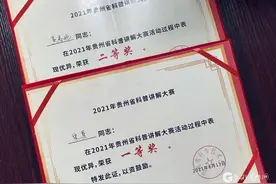 2021年贵州省科普讲解大赛
同志:
在2021年贵州省科普讲解大赛活动过程中表
现优异,荣获 二等奖。
2021年贵州省科普讲解大赛
同志:
在2021年贵州省科普讲解大赛活动过程中表
现优异,荣获 一等奖。
特发此证,以资鼓励。